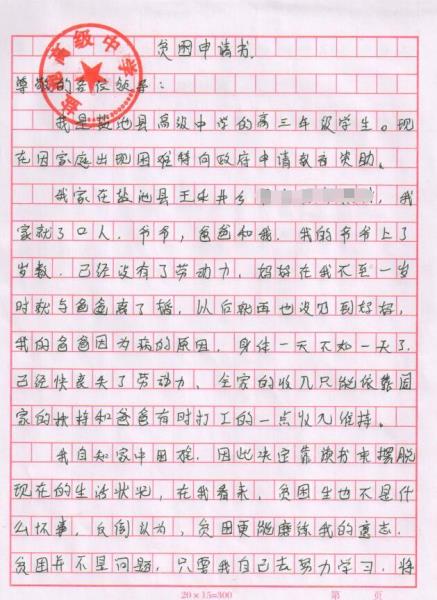 贫困申请书
尊敬的各位领导:
我是盐池县高级中学的高三年级学生。现
在因家庭出现困难特向政府申请教育资助。
我家在盐池县王乐井乡 ,我
家就了口人,爷爷,爸爸和我,我的爷爷上了
岁数,已经没有了劳动力,妈妈在我不至一岁
时就与爸爸离了婚,以后就再也没见到妈妈,
我的爸爸因为病的原因,身体一天不如一天了,
已经快丧失了劳动力,全家的收入只能依靠国
家的扶持和爸爸有时打工的一点收入维持。
我自知家中困难,因此决定靠读书来摆脱
现在的生活状况,在我看来,贫困生也不是什
么坏事,反倒认为,贫困更能磨练我的意志,
贫困并不是问题,只要我自己去努力学习,将
20×15=300 第 页